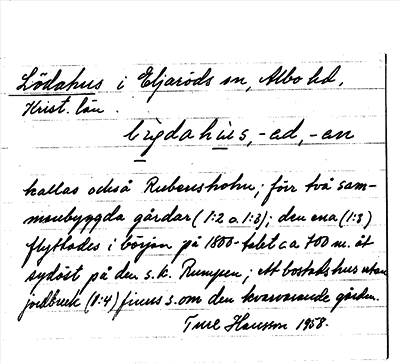 Lödahus i Eljaröds sn, Albo hd,
Krist. län.
lïgdahus, -ad, -an
kallas också Rubensholm; förr två sam-
manbyggda gårdar (1:2 o. 1:3); den ena (1:3)
flyttades i början på 1800-talet ca 700 m. åt
sydöst på den s.k. Rumpen; ett bostadshus utan
jordbruk (1:4) finns s.om den kvarvarande gården.
Ture Hansson 1958.